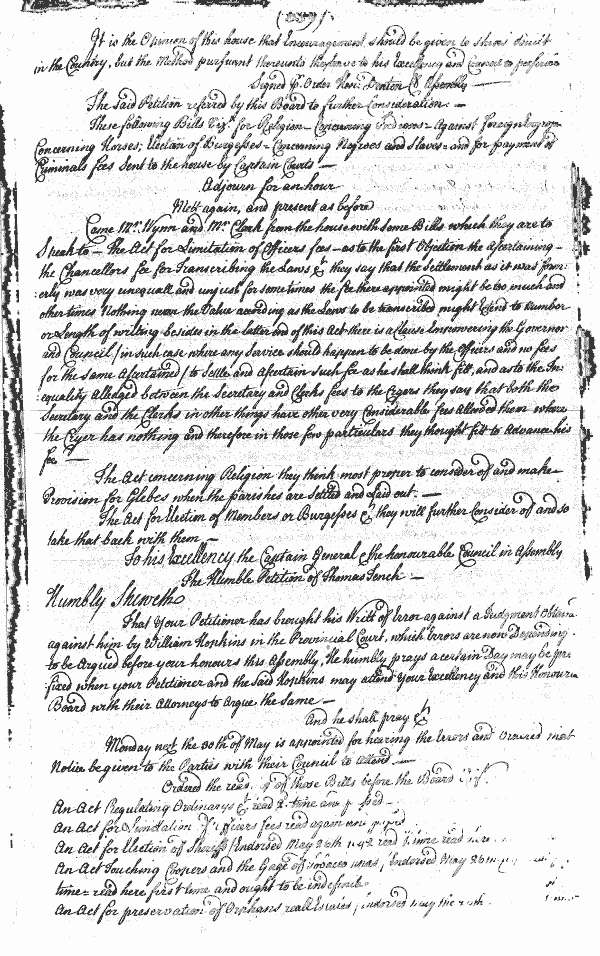 It is the Opinion of this house that Encouragement should be given to shows built
in the Country, but the Method pursuant thereunto they leave to his Excellency and Consort to
Signed p. Order Hen: Denton Cl Assembly
The Said Petition referred by this Board to further Consideration. —
These following Bills Vizt for Religion — Concerning Indians — Against Foreign
Concerning Horses; Election of Burgesses — Concerning Negroes and Slaves — and for payment of
Criminals fees Sent to the house by Captain Courts —
Adjourn for an hour
Mett again, and present as before
Came Mr. Wynn and Mr. Clark from the house with some Bills which they are to
Speak to — The Act for Limitation of Officers fees — as to the first Objection the Ascertaining
the Chancellors fee for Transcribing the Laws &c they say that the Settlement as it was form-
erly was very unequall and unjust for sometimes the fee there appointed might be too much and
other times Nothing near the Value according as the Laws to be transcribed might Extend to Number
or Length of writing besides in the latter end of this Act there is a Clause Impowering the Governor
and Council (in such case where any Service should happen to be done by the Officers and no fees
for the same Ascertained) to Settle and Ascertain such fee as he shall think fitt, and as to the In-
equality Alledged between the Secretary and Clerks fees to the Cryers they say that both the
Secretary and the Clerks in other things have other very Considerable fees Allowed them where
the Cryer has nothing and therefore in those few particulars they thought fitt to Advance his
fee —
The Act concerning Religion they think most proper to consider off and make
Provision for Glebes when the parishes are Settled and Laid out. —
The Act for Election of Members or Burgesses &c they will further Consider off and so
take that back with them —
To his Excellency the Captain General & the honourable Council in Assembly
The Humble Petition of Thomas Tench —
Humbly Sheweth
That Your Petitioner has brought his Writt of Error against a Judgment
against him by William Hopkins in the Provincial Court, which Errors are now Depending
to be Argued before your honours this Assembly, He humbly prays a certain Day may be pre
fixed when your Petitioner and the said Hopkins may attend Your Excellency and this Honour
Board with their Attorneys to Argue the Same —
And he shall pray &c
Monday next the 30th of May is appointed for hearing the Errors and Ordered that
Notice be given to the Parties with their Council to attend —
Ordered the read. of those Bills before the Board
An Act Regulating Ordinarys &c read 2. time and
An Act for Limitation of Officers fees read again and
An Act for Election of Sheriffs Endorsed May 26th read time read
An Act Touching Coopers and the Gage of Tobacco Endorsed May 26th
time — read here first time and ought to be indefinite
An Act for preservation of Orphans reall Estates, indorsed May the